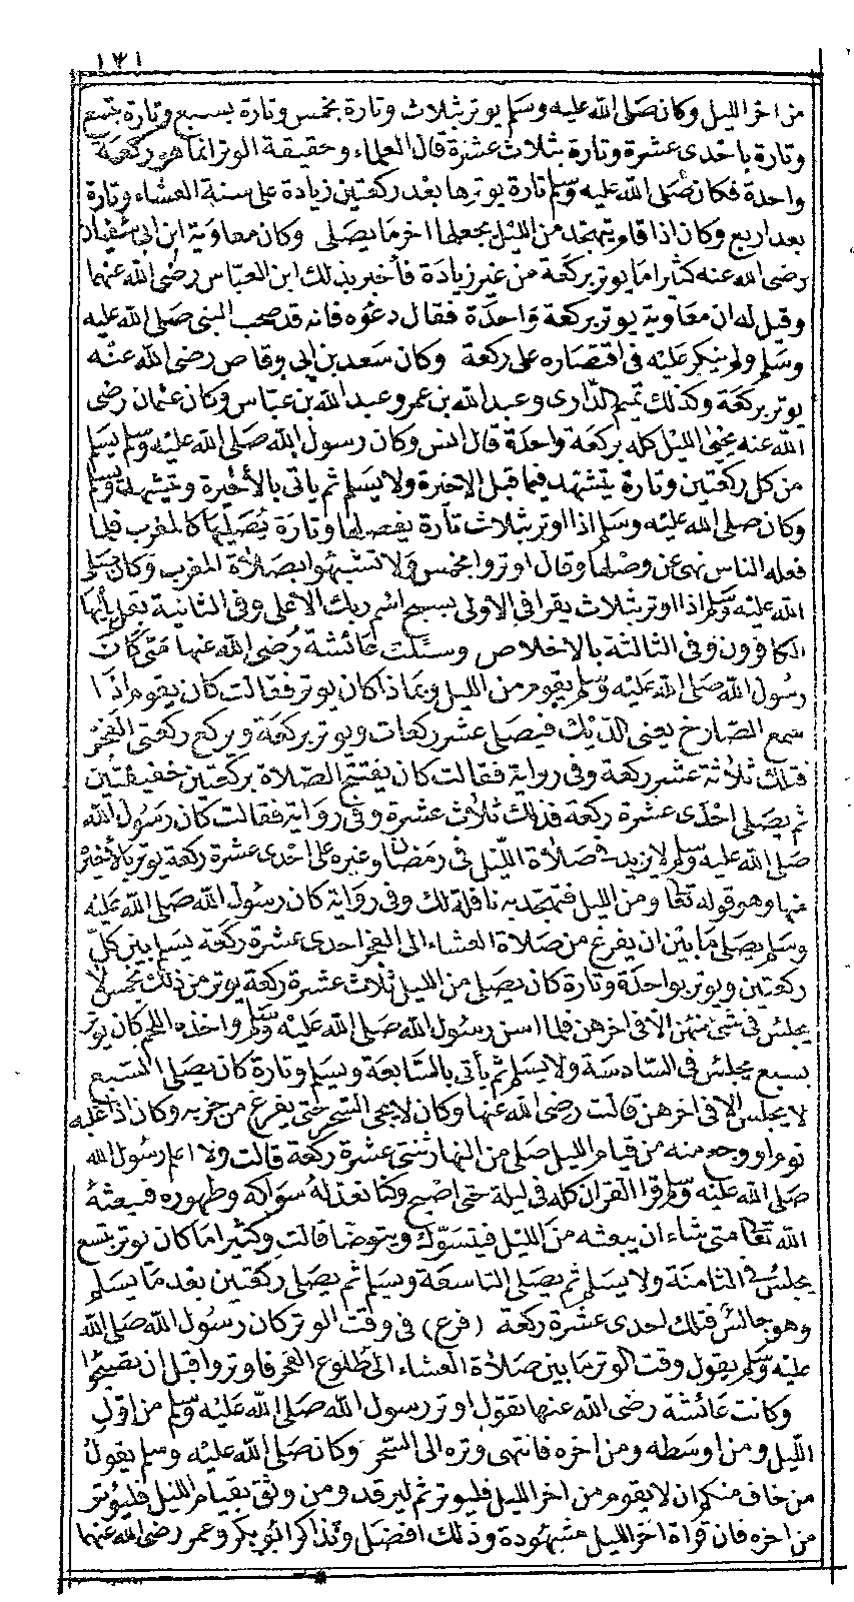 ١٣١
من اخر الليل وكان صلى الله عليه وسلم يوتر بثلاث وتارة بخمس وتارة بسبع وتارة بتسع
وتارة باحدى عشرة وتارة بثلاث عشرة قال العلماء وحقيقة الوتر انما هو ركعة
واحدة فكان صلى الله عليه وسلم تارة يوترها بعد ركعتين زيادة على سنة العشاء وتارة
بعد اربع وكان اذا قام يتهجد من الليل يجعلها اخر ما يصلى وكان معاوية ابن ابى سفيان
رضى الله عنه كثيرا ما يوتر بركعة من غير زيادة فأخبر بذلك ابن العباس رضى الله عنهما
وقيل له ان معاوية يوتر بركعة واحدة فقال دعوه فانه قد صحب النبى صلى الله عليه
وسلم ولم ينكر عليه فى اقتصاره على ركعة وكان سعد بن ابى وقاص رضى الله عنه
يوتر بركعة وكذلك تميم الدارى وعبد الله بن عمر وعبد الله بن عباس وكان عثمان رضى
الله عنه يحيى الليل كله بركعة واحدة قال انس وكان رسول الله صلى الله عليه وسلم يسلم
من كل ركعتين وتارة يتشهد فيما قبل الاخرة ولا يسلم ثم ياتى بالأخيرة ويتشهد ويسلم
وكان صلى الله عليه وسلم اذا اوتر بثلاث تارة يفصلها وتارة يصليها كالمغرب فلما
فعله الناس نهى عن وصلها وقال اوتروا بخمس ولا تشبهوا بصلاة المغرب وكان صلى
الله عليه وسلم اذا اوتر بثلاث يقرا فى الاولى بسبح اسم ربك الأعلى وفى الثانية بقل يأيها
الكافرون وفى الثالثة بالاخلاص وسئلت عائشة رضى الله عنها متى كان
رسول الله صلى الله عليه وسلم يقوم من الليل وبماذا كان يوتر فقالت كان يقوم اذا
سمع الصارخ يعنى الديك فيصلى عشر ركعات ويوتر بركعة ويركع ركعتى الفجر
فتلك ثلاثة عشر ركعة وفى رواية فقالت كان يفتتح الصلاة بركعتين خفيفتين
ثم يصلى احدى عشرة ركعة فذلك ثلاث عشرة وفى رواية فقالت كان رسول الله
صلى الله عليه وسلم لا يزيد فى صلاة الليل فى رمضان وغيره على احدى عشرة ركعة يوتر بالأخيرة
منها وهو قوله تعالى ومن الليل فتهجد به نافلة لك وفى رواية كان رسول الله صلى الله عليه
وسلم يصلى ما بين ان يفرغ من صلاة العشاء الى الفجر احدى عشرة ركعة يسلم بين كل
ركعتين ويوتر بواحدة وتارة كان يصلى من الليل ثلاث عشرة ركعة يوتر من ذلك بخمس لا
يجلس فى شئ منهن الا فى اخرهن فلما اسن رسول الله صلى الله عليه وسلم واخذه اللحم كان يوتر
بسبع يجلس فى السادسة ولا يسلم ثم يأتى بالسابعة ويسلم وتارة كان يصلى السبع
لا يجلس الا فى اخرهن قالت رضى الله عنها وكان لا يجى السحر حتى يفرغ من حزبه وكان اذا غلبه
نوم او وجع منعه من قيام الليل صلى من النهار ثنتى عشرة ركعة قالت ولا اعلم رسول الله
صلى الله عليه وسلم قرأ القران كله فى ليلة حتى اصبح وكنا نعد له سواكه وطهوره فيبعثه
الله تعالى متى شاء ان يبعثه من الليل فيتسوك ويتوضا قالت وكثيرا ما كان يوتر بتسع
يجلس فى الثامنة ولا يسلم ثم يصلى التاسعة ويسلم ثم يصلى ركعتين بعد ما يسلم
وهو جالس فتلك احدى عشرة ركعة (فرع) فى وقت الوتر كان رسول الله صلى الله
عليه وسلم يقول وقت الوتر ما بين صلاة العشاء الى طلوع الفجر فاوتروا قبل ان تصبحوا
وكانت عائشة رضى الله عنها تقول اوتر رسول الله صلى الله عليه وسلم من اول
الليل ومن اوسطه ومن اخره فانتهى وتره الى السحر وكان صلى الله عليه وسلم يقول
من خاف منكم ان لا يقوم من اخر الليل فليوتر ثم ليرقد ومن وثق بقيام الليل فليوتر
من اخره فان قراة اخر الليل مشهودة وذلك افضل وتذاكر ابو بكر وعمر رضى الله عنهما